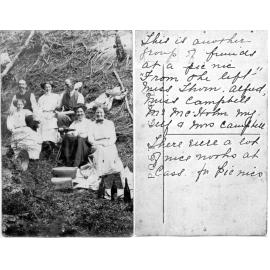 This is another
group of friends
at a picnic
"From the left"
Miss Thom, Alfred,
Miss Campbell
Mr McHolm my
self & Mrs Campbell
There were a lot
of nice nooks at
Cass for picnics